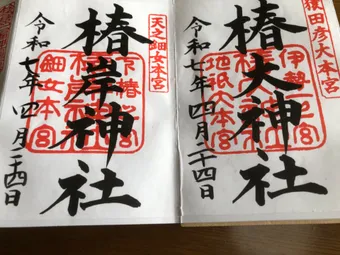 猿田彦大本宮
椿大神社
伊勢一宮
椿大神社
地祇大本宮
令和七年四月二十四日
天之鈿女本宮
椿岸神社
椿岸神社
鈿女本宮
令和七年四月二十四日